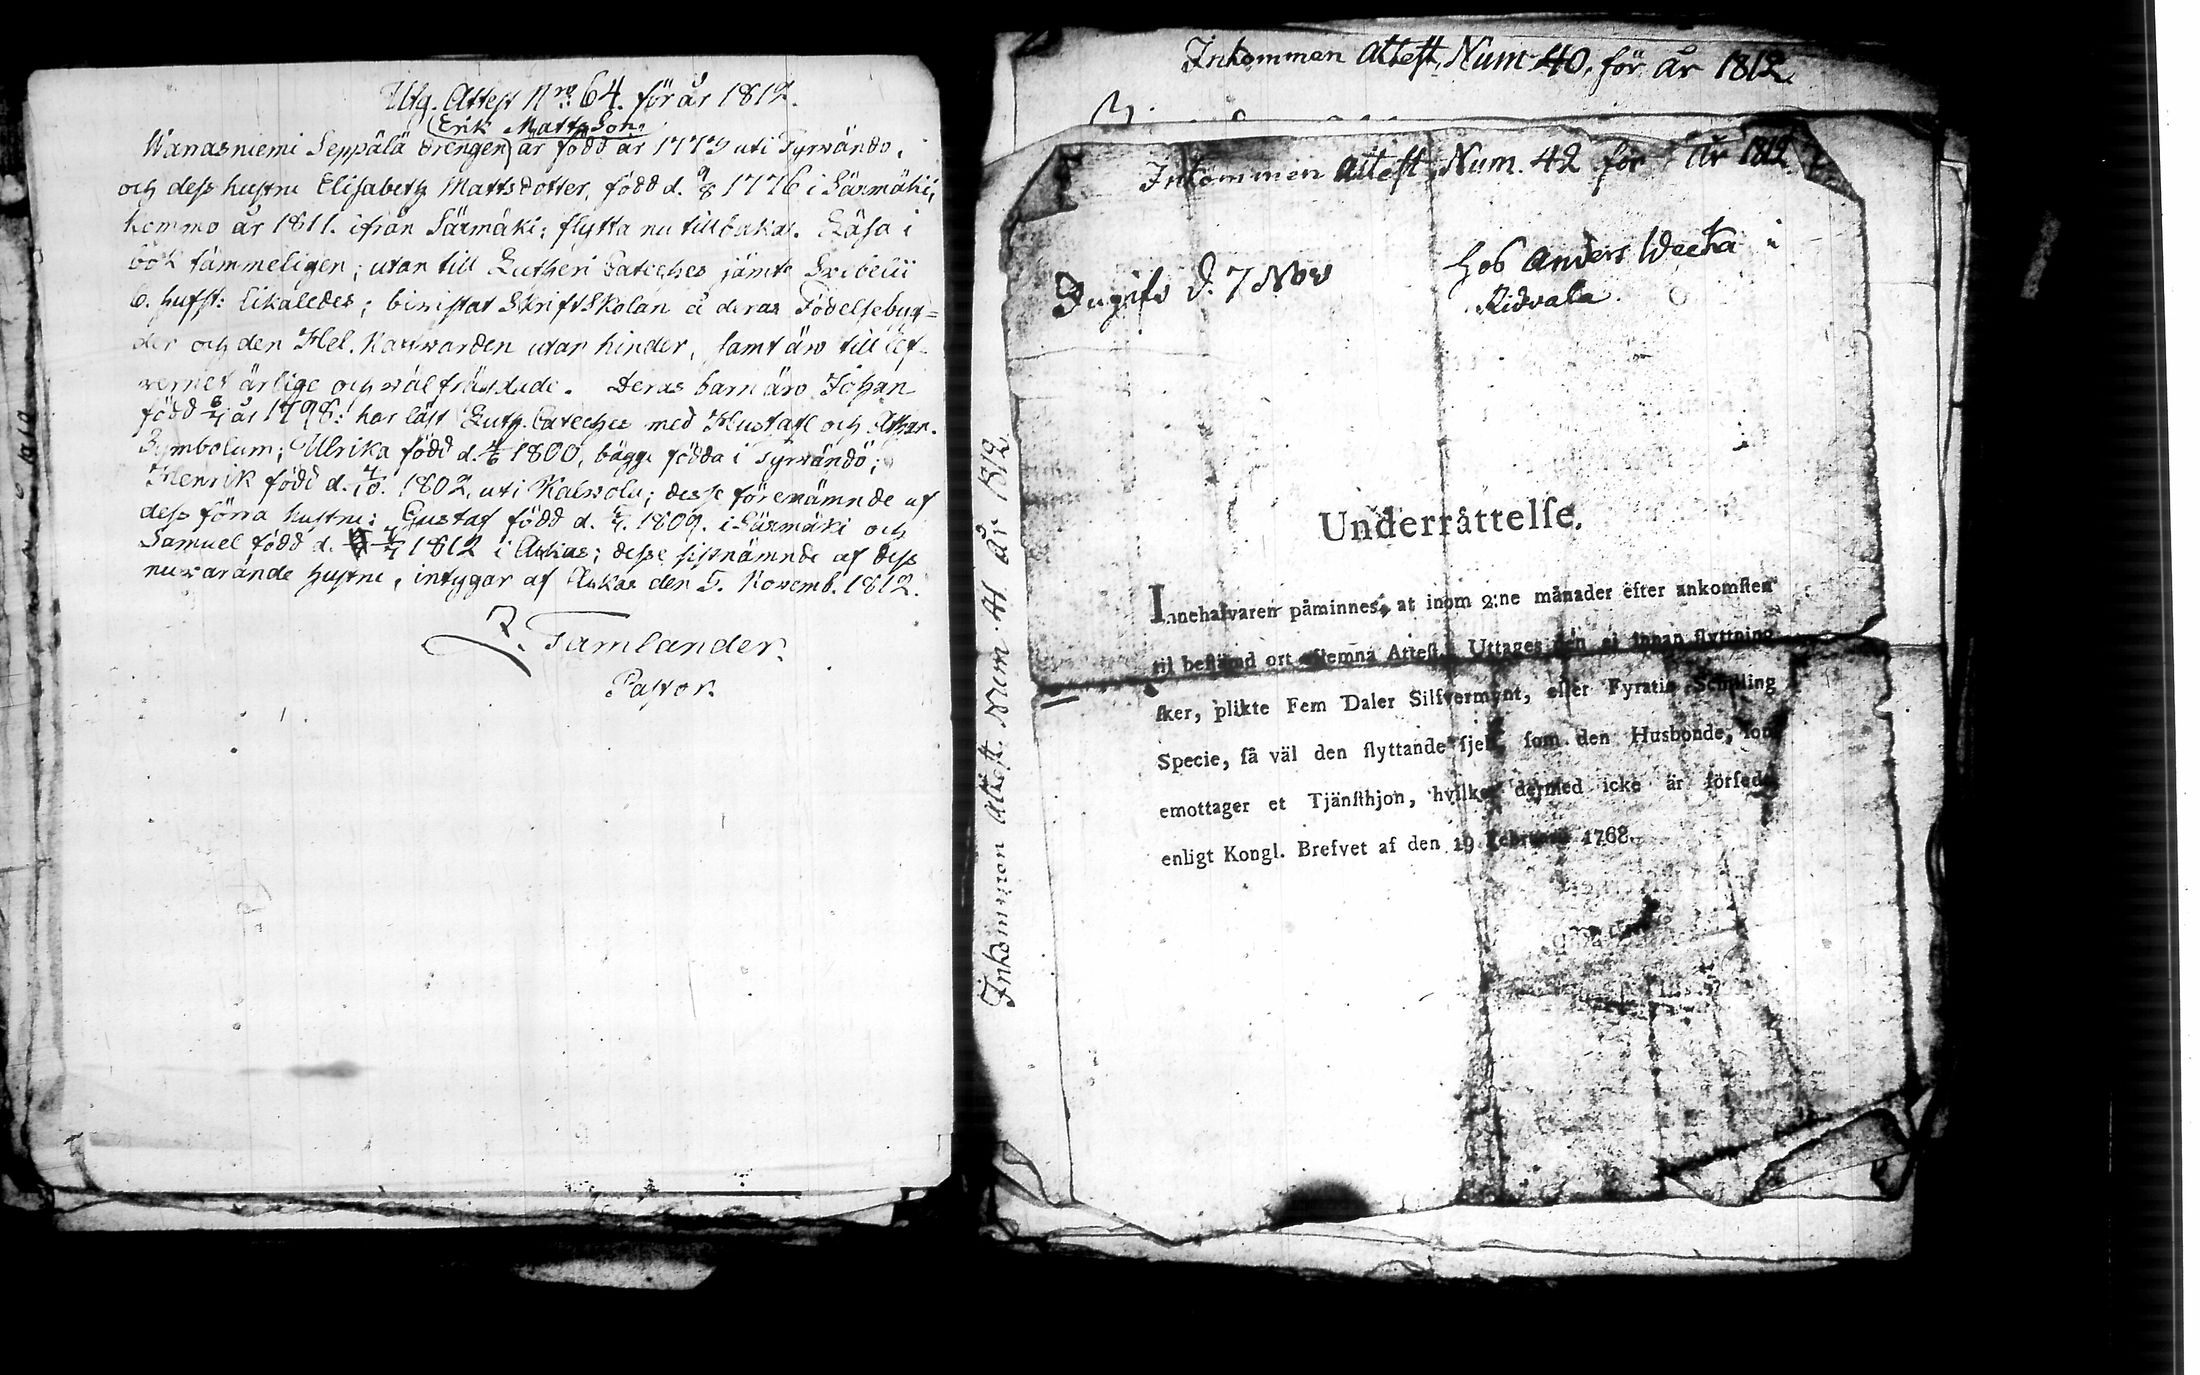 Utg. Attest Nro: 64. för år 1812.
Erik Matts Son
Wanasniemi Seppälä drengen är född år 1773 uti Tyrwändö,
och dess hustru Elisabeth Mattsdotter, född d. 9/8 1776 i Särmäki,
kommo år 1811. ifrån Särmäki; flytta nu tillbaka. Läsa i
bok tämmeligen; utan till Lutheri Cateches jämte Svibelii
6. hufst: likaledes; bivistat Skriftskolan å deras Födelsebyg=
der och den Hel. Nattvarden utan hinder, samt äro till lef-
vernet ärlige och väl frändade. Deras barn äro Johan
född år 1798: har läst Luth. Cateches med Hustafl och Athan.
Symbolum; Ulrika född d. 1800, bägge födda i Tyrvändö;
Henrik född d. 1802. uti Kalvola; desse förenämnde af
dess förra hustru: Gustaf född d. 1809. i Särmäki och
Samuel född d. 1812 i Ackas; desse sistnämnde af dess
nuvarande hustru, intygar af Ackas den 5. Novemb. 1812.
Tamlander.
Pastor.
Inkommen attest, Num 40, för år 1812.
Inkommen attest Num. 42 för år 1812
Ingifv d. 7 Nov
hos Anders Weeka i
Ridvala
Inkommen attest. Num. 41 år 1812
Underrättelse.
Innehafvaren påminnes, at inom 2:ne månader efter ankomsten
til bestämd ort aflemna Attest. Uttages den ej innan flyttning
sker, plikte Fem Daler Silfvermynt, eller Fyratio Schilling
Specie, så väl den flyttande sjelf, som den Husbonde, som
emottager et Tjänsthjon, hvilket dermed icke är försedt,
enligt Kongl. Brefvet af den 19 Februarii 1768.